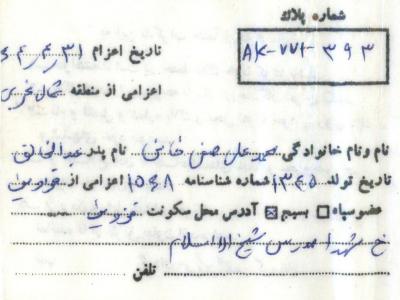 شماره پلاك
AK-771-393
تاریخ اعزام ۳۱ر۴ر
اعزامی از منطقه شمال غرب
نام ونام خانوادگی محمدعلی صفی خانی نام پدر عبدالخالق
تاریخ تولد ۱۳۴۵ شماره شناسنامه ۱۵۴۸ اعزامی از قزوین
عضوسپاه بسیج آدرس محل سکونت قزوین
خ شهدا مدرس شیخ الاسلام
تلفن